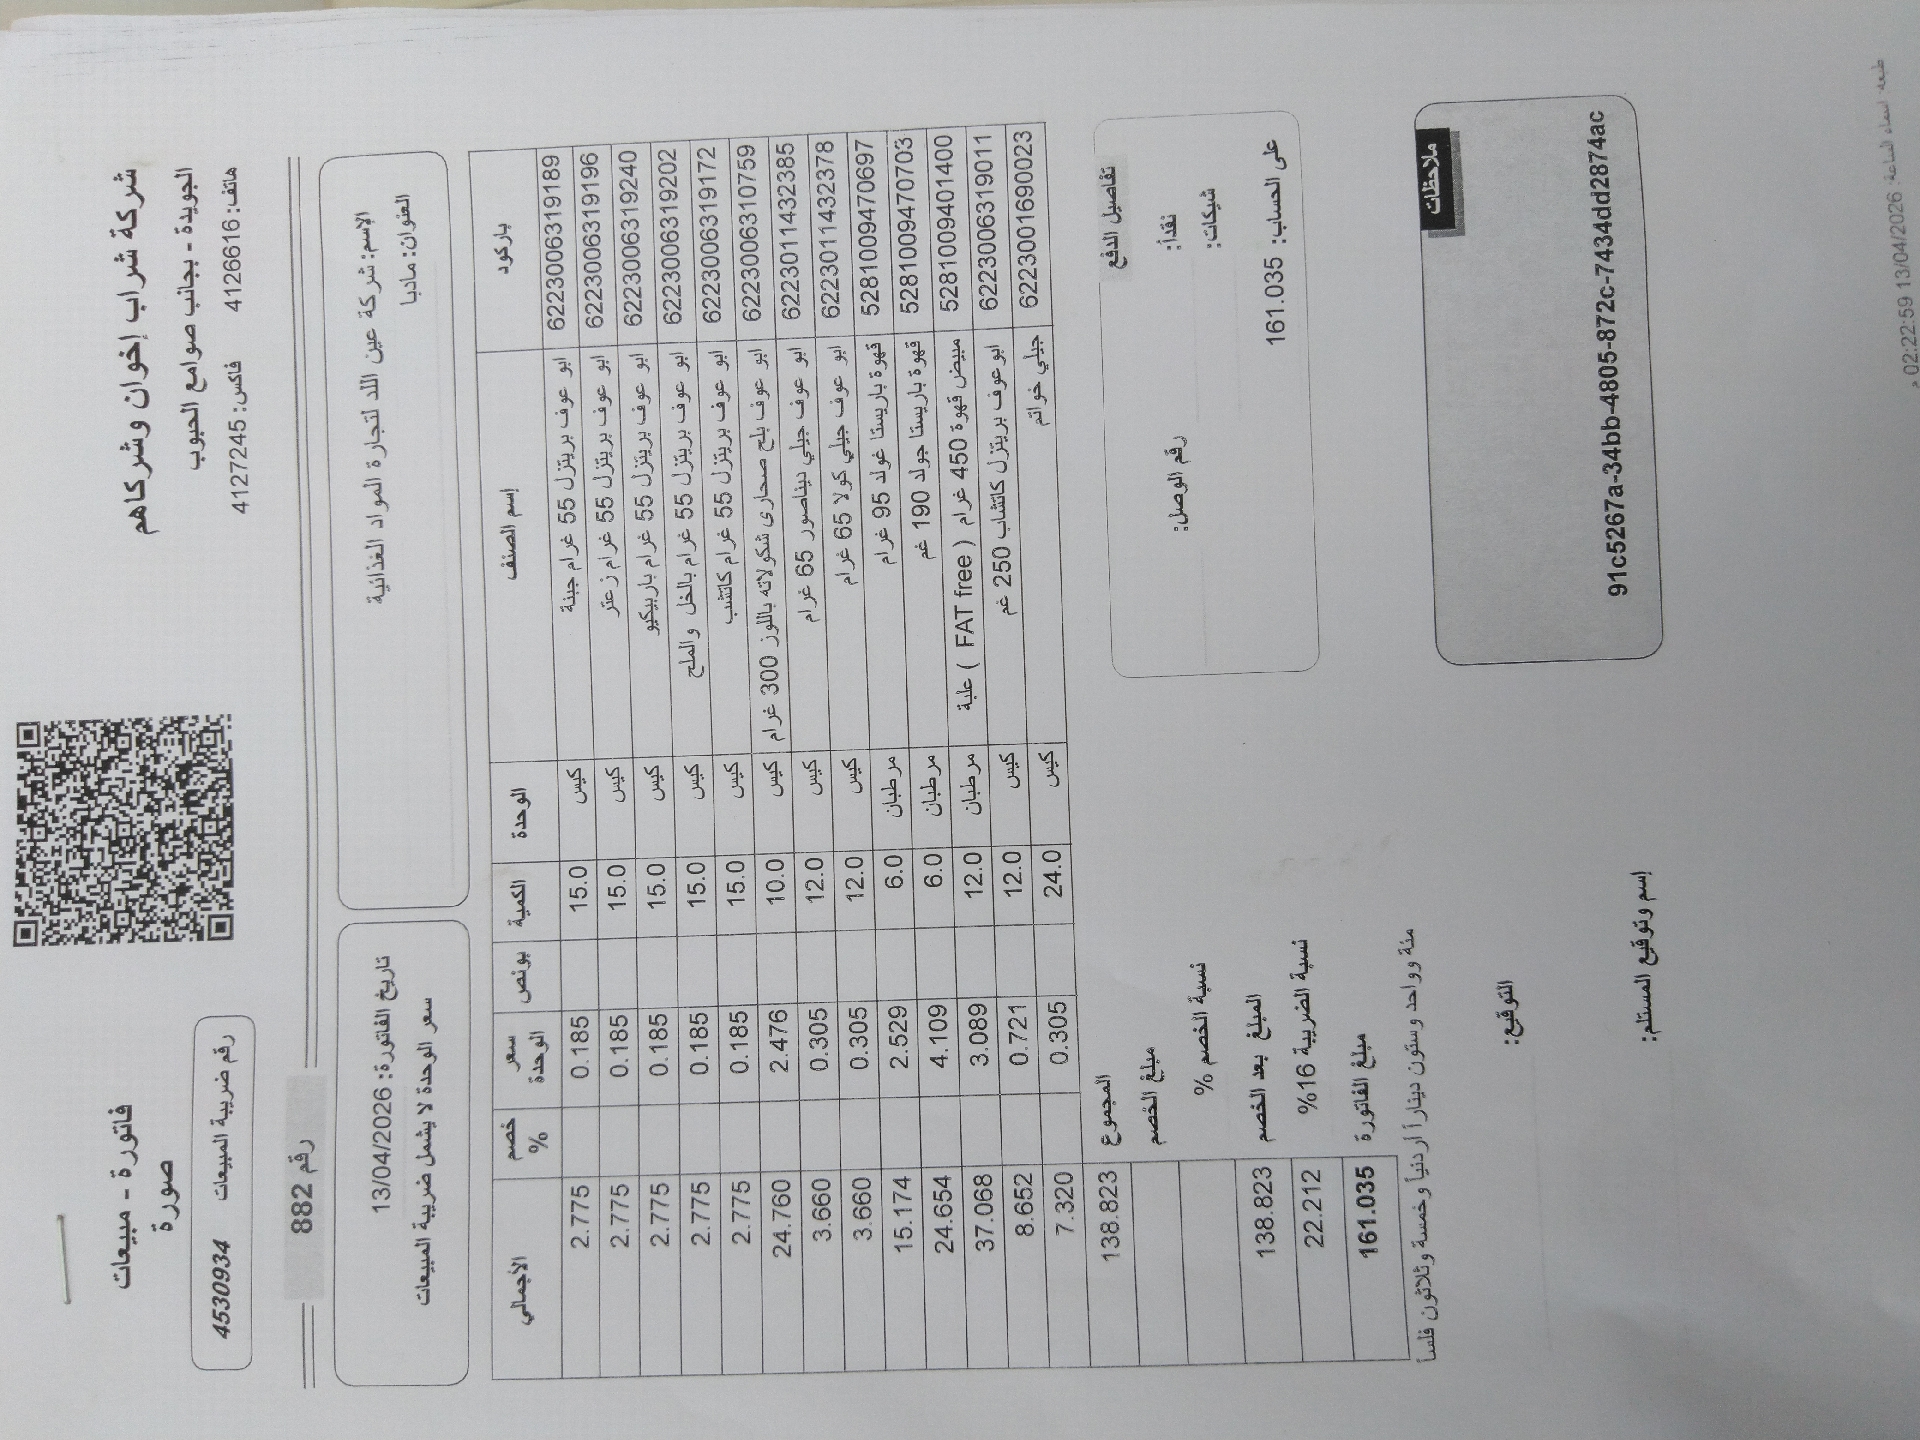 شركة شراب إخوان وشركاهم
الجويدة - بجانب صوامع الحبوب
هاتف: 4126616 فاكس: 4127245
فاتورة - مبيعات
صورة
رقم ضريبة المبيعات 4530934
رقم 882
الإسم: شركة عين اللد لتجارة المواد الغذائية
العنوان: مادبا
تاريخ الفاتورة: 13/04/2026
سعر الوحدة لا يشمل ضريبة المبيعات
باركود إسم الصنف الوحدة الكمية بونص سعر الوحدة خصم % الأجمالي
6223006319189 ابو عوف بريتزل 55 غرام جبنة كيس 15.0 0.185 2.775
6223006319196 ابو عوف بريتزل 55 غرام زعتر كيس 15.0 0.185 2.775
6223006319240 ابو عوف بريتزل 55 غرام باربيكيو كيس 15.0 0.185 2.775
6223006319202 ابو عوف بريتزل 55 غرام بالخل والملح كيس 15.0 0.185 2.775
6223006319172 ابو عوف بريتزل 55 غرام كاتشب كيس 15.0 0.185 2.775
6223006310759 ابو عوف بلح صحارى شكولاته باللوز 300 غرام كيس 10.0 2.476 24.760
6223011432385 ابو عوف جيلي ديناصور 65 غرام كيس 12.0 0.305 3.660
6223011432378 ابو عوف جيلي كولا 65 غرام كيس 12.0 0.305 3.660
5281009470697 قهوة باريستا غولد 95 غرام مرطبان 6.0 2.529 15.174
5281009470703 قهوة باريستا جولد 190 غم مرطبان 6.0 4.109 24.654
5281009401400 مبيض قهوة 450 غرام ( FAT free ) علبة مرطبان 12.0 3.089 37.068
6223006319011 ابوعوف بريتزل كاتشاب 250 غم كيس 12.0 0.721 8.652
6223001690023 جيلي خواتم كيس 24.0 0.305 7.320
المجموع 138.823
مبلغ الخصم
نسبة الخصم %
المبلغ بعد الخصم 138.823
نسبة الضريبة 16% 22.212
مبلغ الفاتورة 161.035
مئة وواحد وستون ديناراً اردنياً وخمسة وثلاثون فلساً
تفاصيل الدفع
نقداً:
رقم الوصل:
شيكات:
على الحساب: 161.035
ملاحظات
91c5267a-34bb-4805-872c-7434dd2874ac
التوقيع:
إسم وتوقيع المستلم:
طبعه: اسماء الساعة: 13/04/2026 02:22:59 م